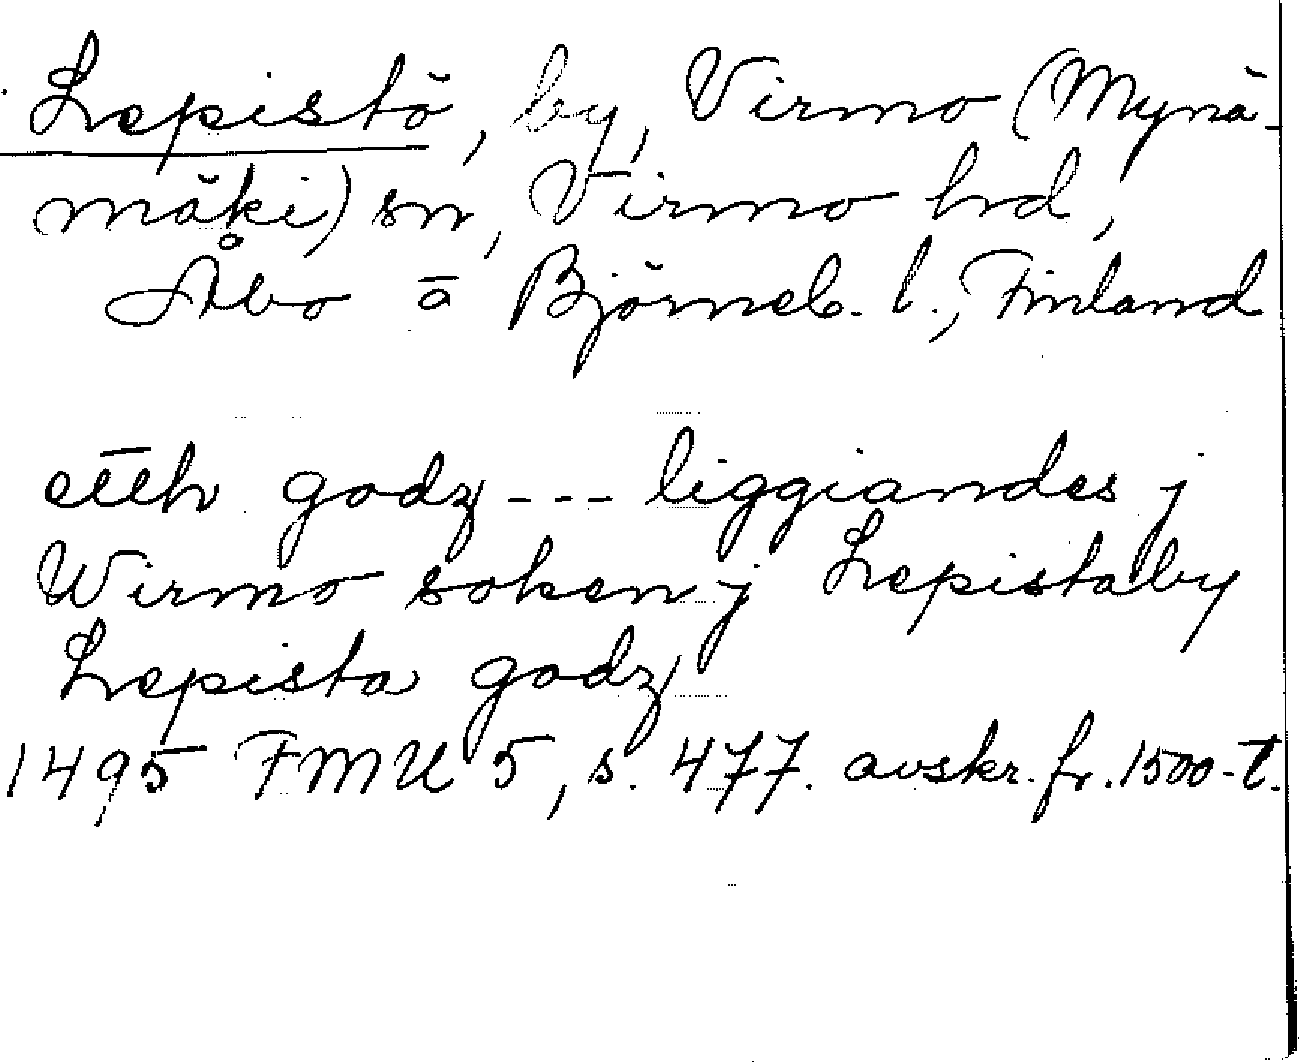 Lepistö, by, Virmo (Mynä-
mäki) sn, Virmo hd,
Åbo o Björneb. l., Finland
etth godz --- liggiandes j
Wirmo soken j Lepistaby
Lepista godz
1495 FMU 5, s. 477. avskr. fr. 1500-t.